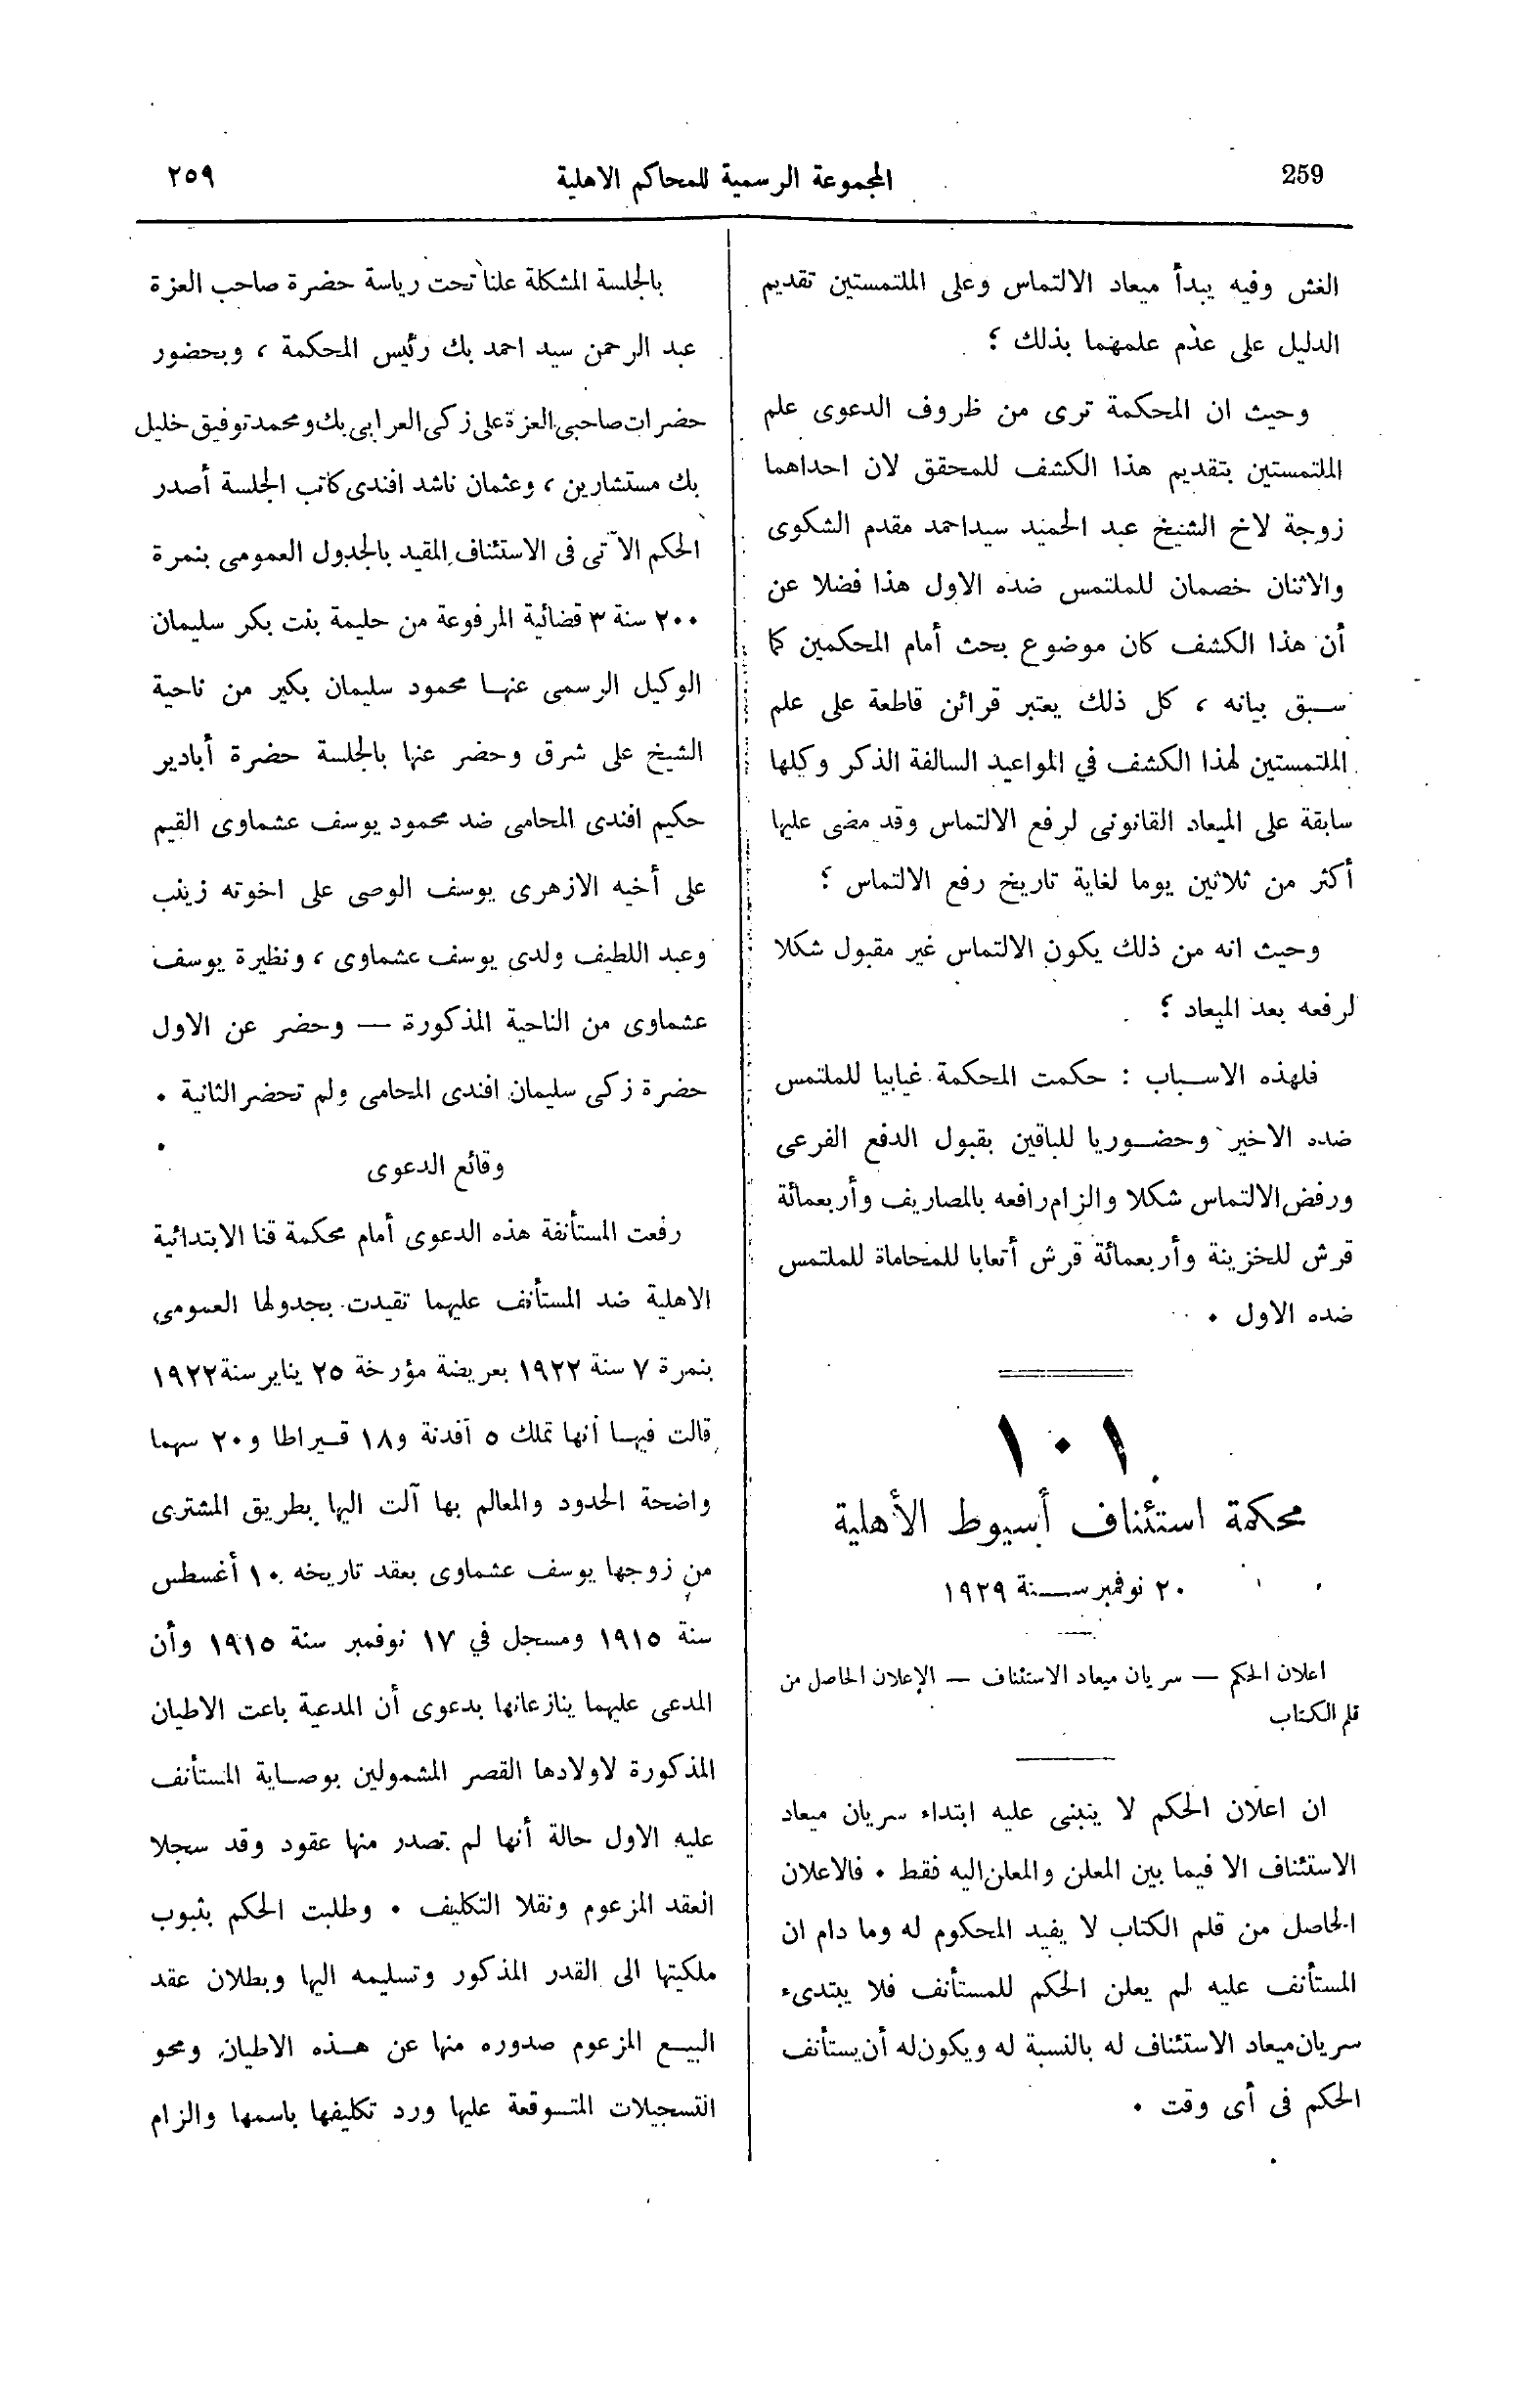 259
المجموعة الرسمية للمحاكم الاهلية
٢٥٩
الغش وفيه يبدأ ميعاد الالتماس وعلى الملتمستين تقديم
الدليل على عدم علمهما بذلك ؛
وحيث ان المحكمة ترى من ظروف الدعوى علم
الملتمستين بتقديم هذا الكشف للمحقق لان احداهما
زوجة لاخ الشيخ عبد الحميد سيداحمد مقدم الشكوى
والاثنان خصمان للملتمس ضده الاول هذا فضلا عن
أن هذا الكشف كان موضوع بحث أمام المحكمين كما
سبق بيانه ، كل ذلك يعتبر قرائن قاطعة على علم
الملتمستين لهذا الكشف في المواعيد السالفة الذكر وكلها
سابقة على الميعاد القانونى لرفع الالتماس وقد مضى عليها
أكثر من ثلاثين يوما لغاية تاريخ رفع الالتماس ؛
وحيث انه من ذلك يكون الالتماس غير مقبول شكلا
لرفعه بعد الميعاد ؛
فلهذه الاسباب : حكمت المحكمة غيابيا للملتمس
ضده الاخير وحضوريا للباقين بقبول الدفع الفرعى
ورفض الالتماس شكلا والزام رافعه بالمصاريف وأربعمائة
قرش للخزينة وأربعمائة قرش أتعابا للمحاماة للملتمس
ضده الاول .
١٠١
محكمة استئناف أسيوط الأهلية
٢٠ نوفمبر سنة ١٩٢٩
اعلان الحكم — سريان ميعاد الاستئناف — الإعلان الحاصل من
قلم الكتاب
ان اعلان الحكم لا ينبنى عليه ابتداء سريان ميعاد
الاستئناف الا فيما بين المعلن والمعلن اليه فقط . فالاعلان
الحاصل من قلم الكتاب لا يفيد المحكوم له وما دام ان
المستأنف عليه لم يعلن الحكم للمستأنف فلا يبتدىء
سريان ميعاد الاستئناف له بالنسبة له ويكون له أن يستأنف
الحكم فى أى وقت .
بالجلسة المشكلة علنا تحت رياسة حضرة صاحب العزة
عبد الرحمن سيد احمد بك رئيس المحكمة ، وبحضور
حضرات صاحبى العزة على زكى العرابى بك ومحمد توفيق خليل
بك مستشارين ، وعثمان ناشد افندى كاتب الجلسة أصدر
الحكم الآتى فى الاستئناف المقيد بالجدول العمومى بنمرة
٢٠٠ سنة ٣ قضائية المرفوعة من حليمة بنت بكر سليمان
الوكيل الرسمى عنها محمود سليمان بكير من ناحية
الشيخ على شرق وحضر عنها بالجلسة حضرة أبادير
حكيم افندى المحامى ضد محمود يوسف عشماوى القيم
على أخيه الازهرى يوسف الوصى على اخوته زينب
وعبد اللطيف ولدى يوسف عشماوى ، ونظيرة يوسف
عشماوى من الناحية المذكورة — وحضر عن الاول
حضرة زكى سليمان افندى المحامى ولم تحضر الثانية .
وقائع الدعوى
رفعت المستأنفة هذه الدعوى أمام محكمة قنا الابتدائية
الاهلية ضد المستأنف عليهما تقيدت بجدولها العمومى
بنمرة ٧ سنة ١٩٢٢ بعريضة مؤرخة ٢٥ يناير سنة ١٩٢٢
قالت فيها أنها تملك ٥ أفدنة و١٨ قيراطا و٢٠ سهما
واضحة الحدود والمعالم بها آلت اليها بطريق المشترى
من زوجها يوسف عشماوى بعقد تاريخه ١٠ أغسطس
سنة ١٩١٥ ومسجل في ١٧ نوفمبر سنة ١٩١٥ وأن
المدعى عليهما ينازعانها بدعوى أن المدعية باعت الاطيان
المذكورة لاولادها القصر المشمولين بوصاية المستأنف
عليه الاول حالة أنها لم تصدر منها عقود وقد سجلا
العقد المزعوم ونقلا التكليف . وطلبت الحكم بثبوب
ملكيتها الى القدر المذكور وتسليمه اليها وبطلان عقد
البيع المزعوم صدوره منها عن هذه الاطيان ومحو
التسجيلات المتسوقعة عليها ورد تكليفها باسمها والزام